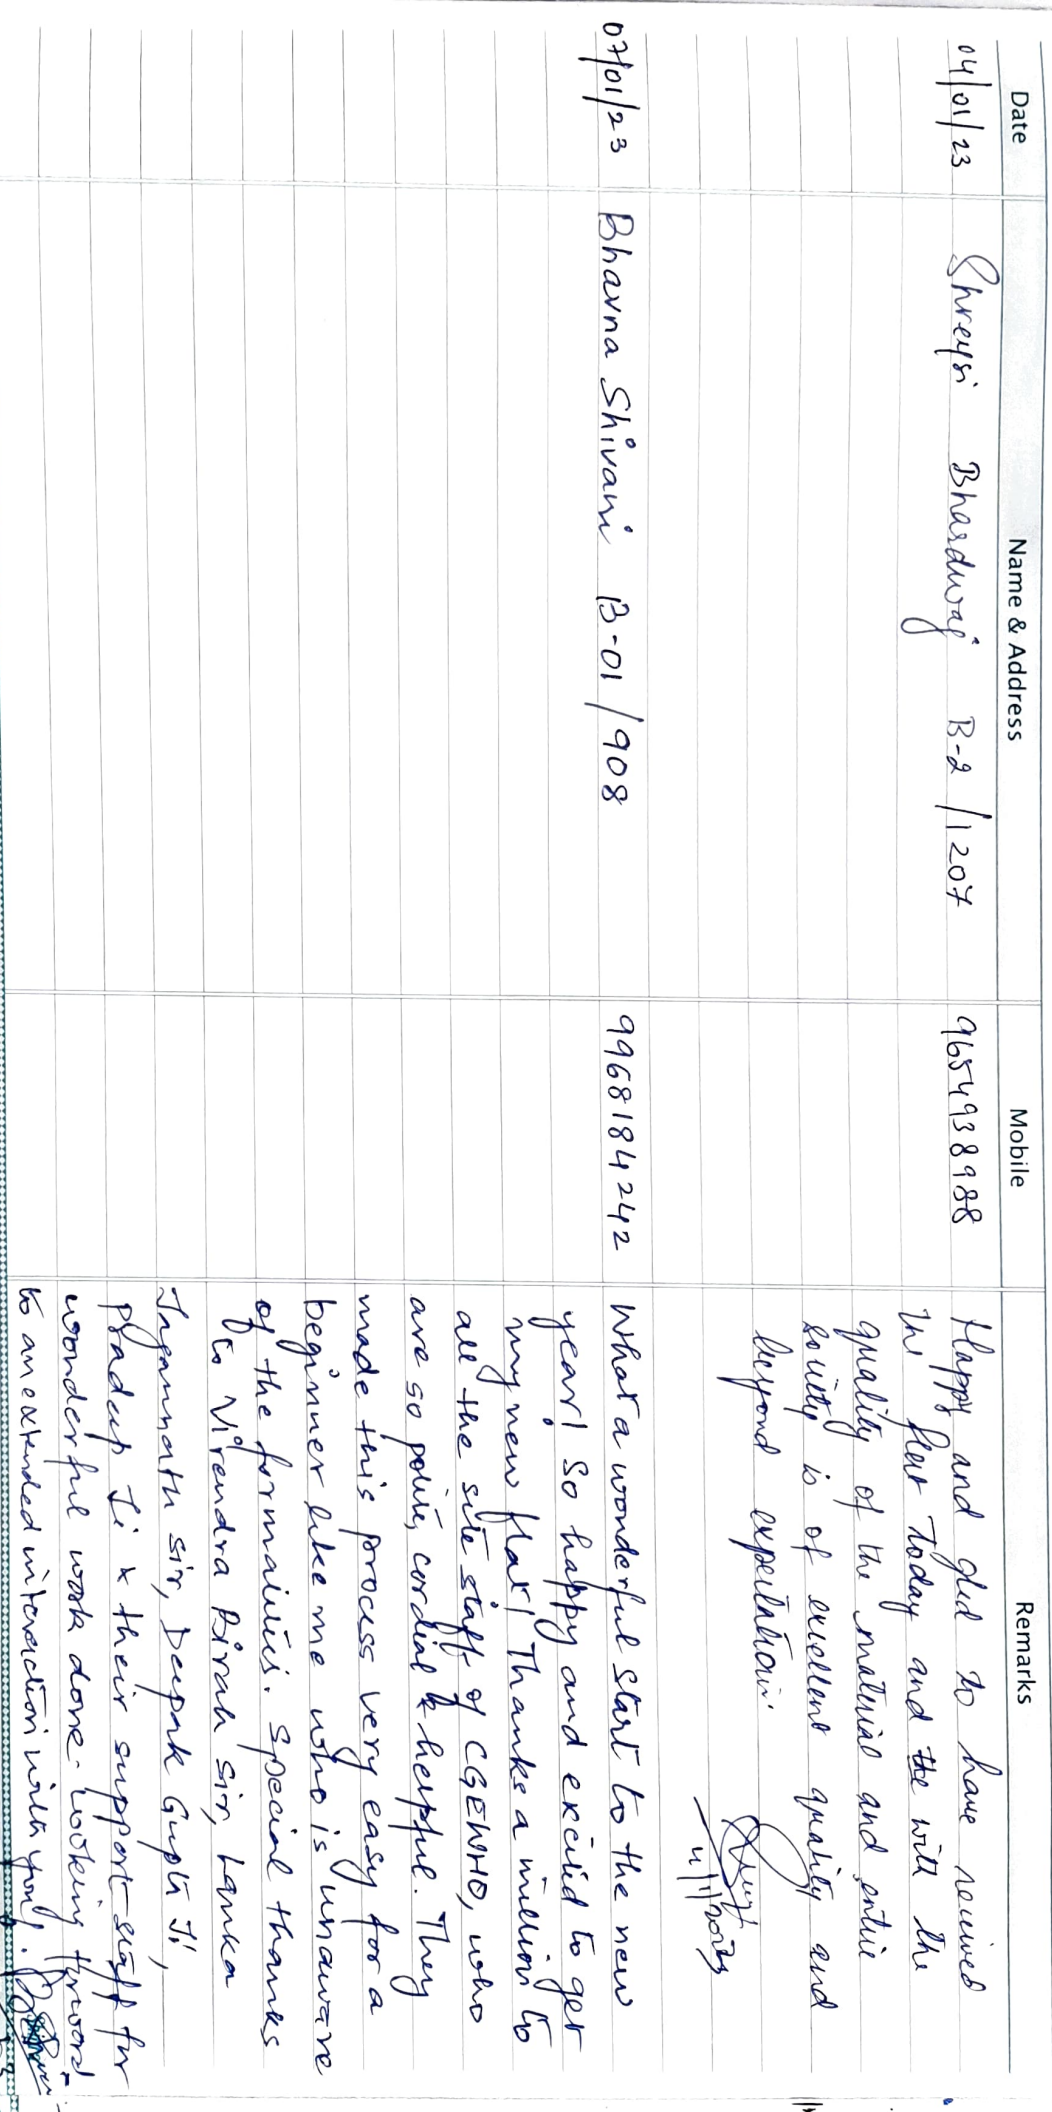 Date Name & Address Mobile Remarks
04/01/23 Shreysi Bhardwaj B-2/1207 9654938988 Happy and gled to have received
the flat Today and the with the
quality of the material and entire
society is of excellent quality and
beyond expectation.
4/1/2023
07/01/23 Bhavna Shivani B-01/908 9968184242 What a wonderful start to the new
year! So happy and excited to get
my new flat! Thanks a million to
all the site staff of CGEWHO, who
are so polite, cordial & helpful. They
made this process very easy for a
beginner like me who is unaware
of the formalities. Special thanks
to Virendra Birah sir, Lanka
Jagannath sir, Deepak Gupta Ji,
Pradeep Ji & their support staff for
wonderful work done. Looking forward
to an extended interaction with you!